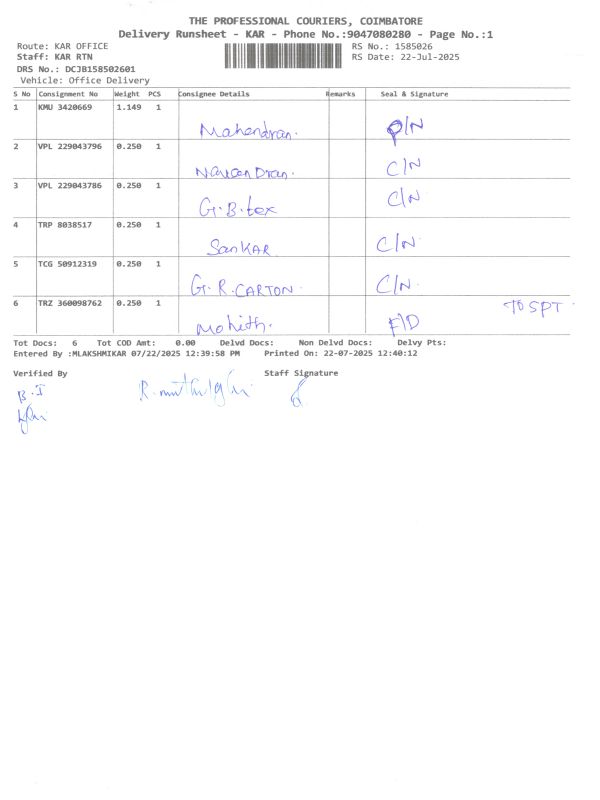 THE PROFESSIONAL COURIERS, COIMBATORE
Delivery Runsheet - KAR - Phone No.:9047080280 - Page No.:1
Route: KAR OFFICE RS No.: 1585026
Staff: KAR RTN RS Date: 22-Jul-2025
DRS No.: DCJB158502601
Vehicle: Office Delivery
S No Consignment No Weight PCS Consignee Details Remarks Seal & Signature
1 KMU 3420669 1.149 1
Mahendran. P/N
2 VPL 229043796 0.250 1
C/N
3 VPL 229043786 0.250 1
G.B.tex C/N
4 TRP 8038517 0.250 1
SanKAR C/N
5 TCG 50912319 0.250 1
G.R.CARTON. C/N.
6 TRZ 360098762 0.250 1 To SPT
Mohith. F/D
Tot Docs: 6 Tot COD Amt: 0.00 Delvd Docs: Non Delvd Docs: Delvy Pts:
Entered By :MLAKSHMIKAR 07/22/2025 12:39:58 PM Printed On: 22-07-2025 12:40:12
Verified By Staff Signature
B.I